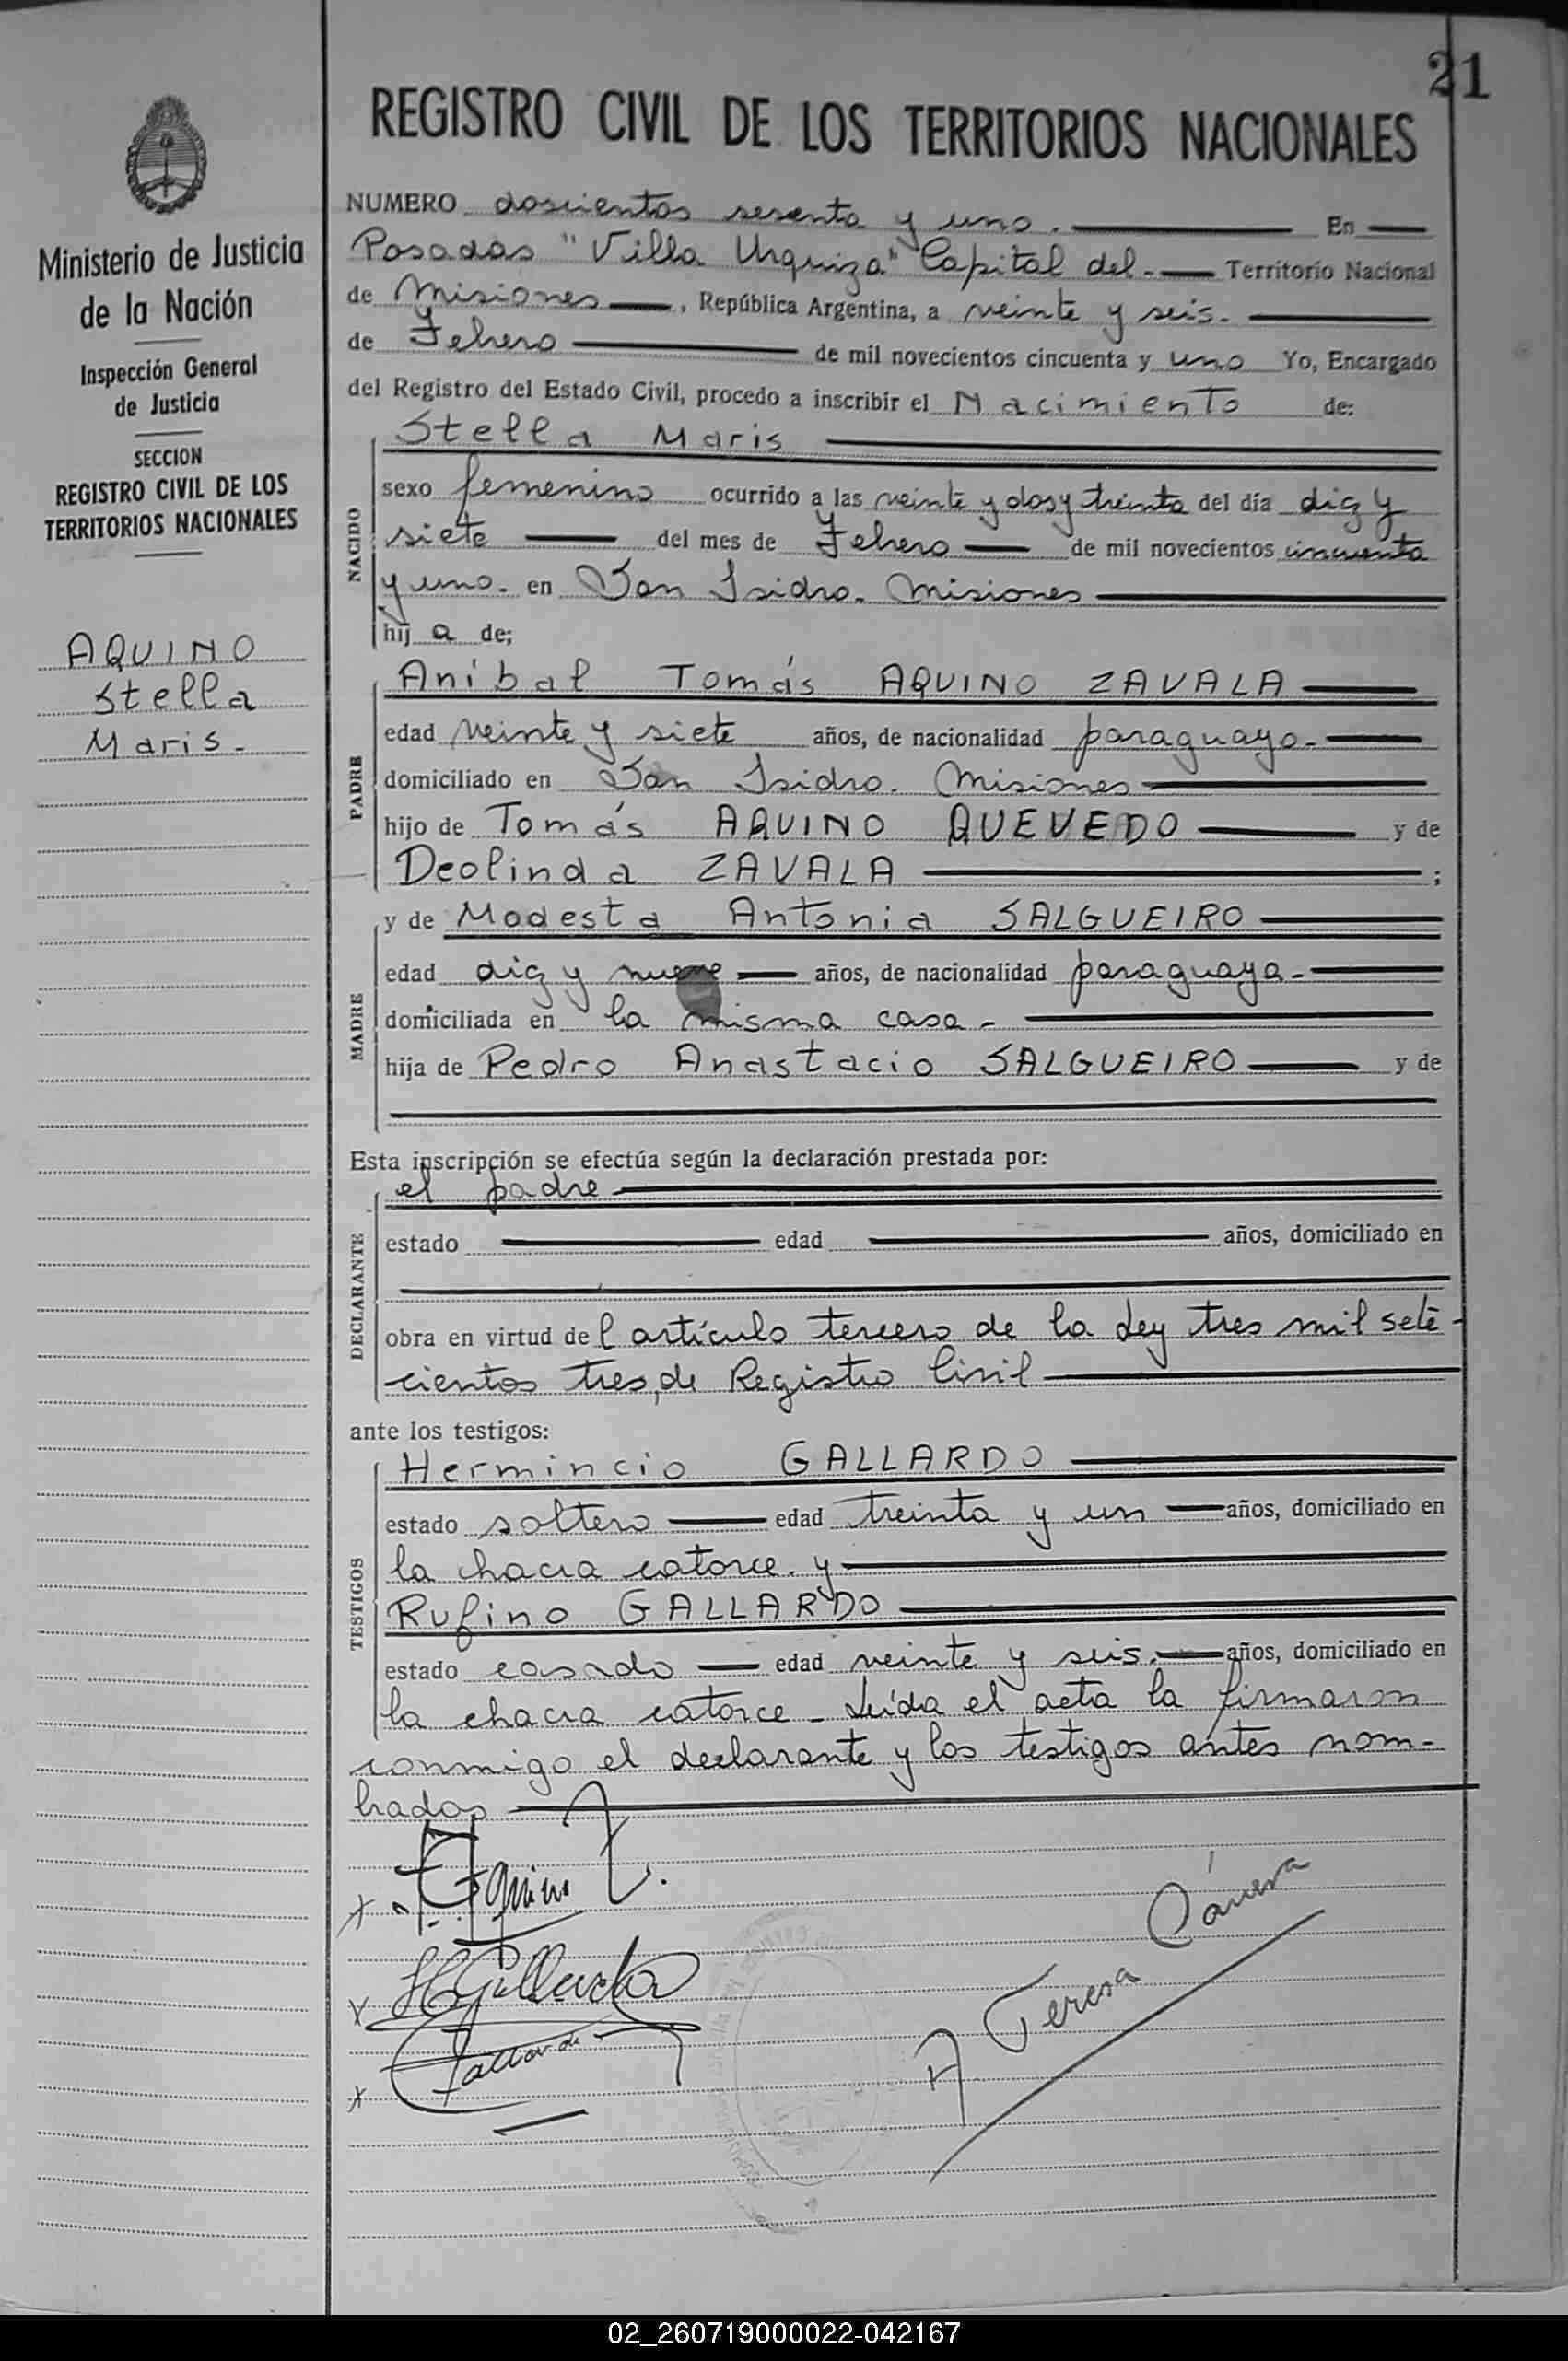 21
REGISTRO CIVIL DE LOS TERRITORIOS NACIONALES
Ministerio de Justicia
de la Nación
Inspección General
de Justicia
SECCION
REGISTRO CIVIL DE LOS
TERRITORIOS NACIONALES
AQUINO
Stella
Maris.-
NUMERO doscientos sesenta y uno. En
Posadas "Villa Urquiza" Capital del.- Territorio Nacional
de Misiones, República Argentina, a veinte y seis.-
de Febrero de mil novecientos cincuenta y uno Yo, Encargado
del Registro del Estado Civil, procedo a inscribir el Nacimiento de:
Stella Maris
NACIDO
sexo femenino ocurrido a las veinte y dos y treinta del día diez y
siete del mes de Febrero de mil novecientos cincuenta
y uno.- en San Isidro. Misiones
hij a de;
Aníbal Tomás AQUINO ZAVALA
PADRE
edad veinte y siete años, de nacionalidad paraguayo.-
domiciliado en San Isidro. Misiones
hijo de Tomás AQUINO QUEVEDO y de
Deolinda ZAVALA ;
y de Modesta Antonia SALGUEIRO
MADRE
edad diez y nueve años, de nacionalidad paraguaya.-
domiciliada en la misma casa.-
hija de Pedro Anastacio SALGUEIRO y de
Esta inscripción se efectúa según la declaración prestada por:
el padre
DECLARANTE
estado edad años, domiciliado en
obra en virtud del artículo tercero de la Ley tres mil sete-
cientos tres, de Registro Civil
ante los testigos:
Hermincio GALLARDO
TESTIGOS
estado soltero edad treinta y un años, domiciliado en
la chacra catorce. y
Rufino GALLARDO
estado casado edad veinte y seis.- años, domiciliado en
la chacra catorce - Leída el acta la firmaron
conmigo el declarante y los testigos antes nom-
brados
x Aquino Z.
x HGallardo
x Gallardo
A Teresa
02_260719000022-042167